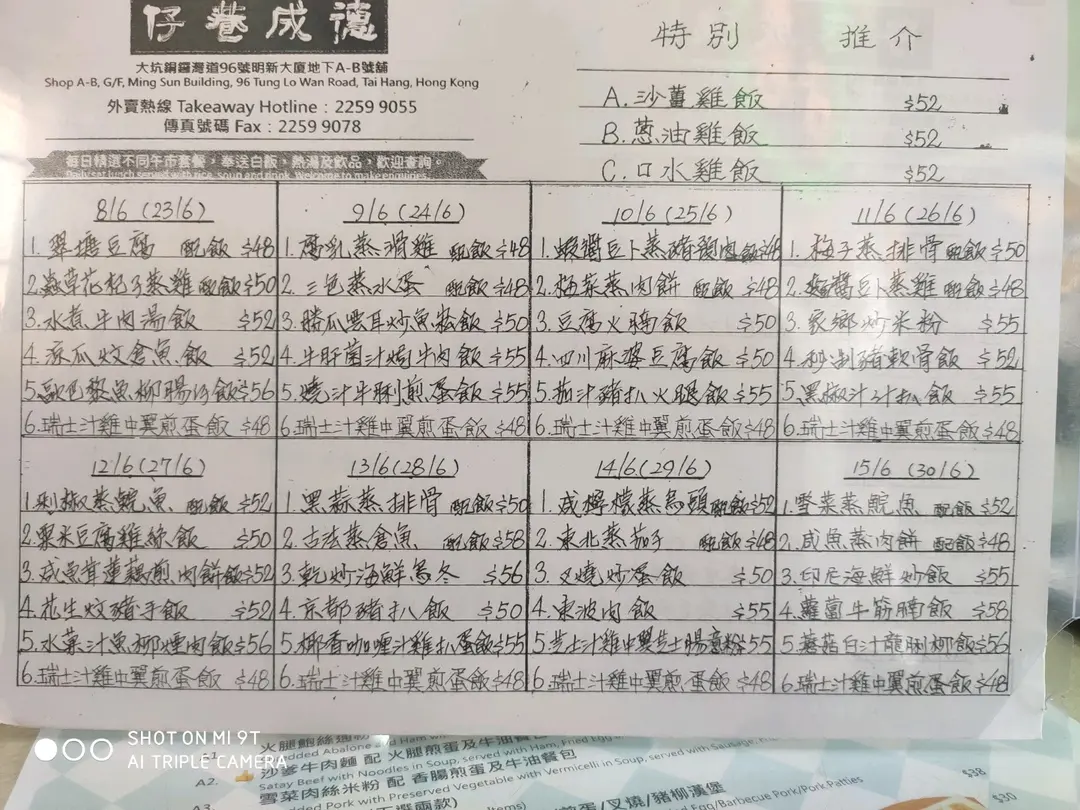 德成巷仔
大坑銅鑼灣道96號明新大廈地下A-B號舖
Shop A-B, G/F, Ming Sun Building, 96 Tung Lo Wan Road, Tai Hang, Hong Kong
外賣熱線 Takeaway Hotline : 2259 9055
傳真號碼 Fax : 2259 9078
每日精選不同午市套餐，奉送白飯，熱湯及飲品，歡迎查詢。
Daily set lunch served with rice, soup and drink. Welcome to make enquiries.
特別 推介
A.沙薑雞飯 $52
B.蔥油雞飯 $52
C.口水雞飯 $52
8/6 (23/6)
1. 翠塘豆腐 配飯 $48
2.蟲草花杞子蒸雞 配飯 $50
3.水煮牛肉湯飯 $52
4.涼瓜炆倉魚飯 $52
5.魚柳腸仔飯 $56
6.瑞士汁雞中翼煎蛋飯 $48
9/6 (24/6)
1.腐乳蒸滑雞 配飯 $48
2.三色蒸水蛋 配飯 $48
3.勝瓜雲耳炒魚菘飯 $50
4.牛肝菌汁焗牛肉飯 $55
5.燒汁牛脷煎蛋飯 $55
6.瑞士汁雞中翼煎蛋飯 $48
10/6 (25/6)
1.蝦醬豆卜蒸豬頸肉 $48
2.梅菜蒸肉餅 配飯 $48
3.豆腐火腩飯 $50
4.四川麻婆豆腐飯 $50
5.茄汁豬扒火腿飯 $55
6.瑞士汁雞中翼煎蛋飯 $48
11/6 (26/6)
1.梅子蒸排骨 配飯 $50
2.醬豆卜蒸雞 配飯 $48
3.家鄉炒米粉 $55
4.秘制豬軟骨飯 $52
5.黑椒汁扒飯 $55
6.瑞士汁雞中翼煎蛋飯 $48
12/6 (27/6)
1.剁椒蒸鯇魚 配飯 $52
2.粟米豆腐雞絲飯 $50
3.咸魚茸蓮藕煎肉餅飯 $52
4.花生炆豬手飯 $52
5.水菓汁魚柳煙肉飯 $56
6.瑞士汁雞中翼煎蛋飯 $48
13/6 (28/6)
1.黑蒜蒸排骨 配飯 $50
2.古法蒸倉魚 配飯 $58
3.乾炒海鮮烏冬 $56
4.京都豬扒飯 $50
5.椰香咖喱汁雞扒蛋飯 $55
6.瑞士汁雞中翼煎蛋飯 $48
14/6 (29/6)
1.咸檸檬蒸烏頭 配飯 $52
2.東北蒸茄子 配飯 $48
3.叉燒炒蛋飯 $50
4.東波肉飯 $55
5.芝士汁雞中翼芝士腸意粉 $55
6.瑞士汁雞中翼煎蛋飯 $48
15/6 (30/6)
1.雪菜蒸鯇魚 配飯 $52
2.咸魚蒸肉餅 配飯 $48
3.印尼海鮮炒飯 $55
4.蘿蔔牛筋腩飯 $58
5.蘑菇白汁龍脷柳飯 $56
6.瑞士汁雞中翼煎蛋飯 $48
A2. 沙爹牛肉麵 配 火腿煎蛋及牛油餐包
Satay Beef with Noodles in Soup, served with Ham, Fried Egg
雪菜肉絲米粉 配 香腸煎蛋及牛油餐包
dded Pork with Preserved Vegetable with Vermicelli in Soup, served with Sausage,
$38
$30
SHOT ON MI 9T
AI TRIPLE CAMERA